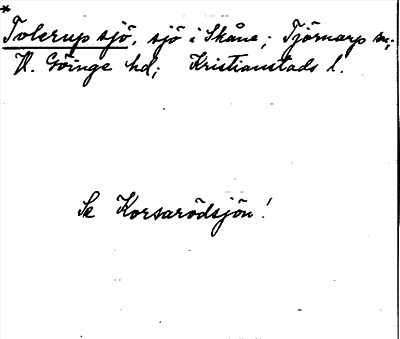 *
Tolerup sjö, sjö i Skåne; Tjörnarp sn;
V. Göinge hd; Kristianstads l.
Se Korsarödsjön!